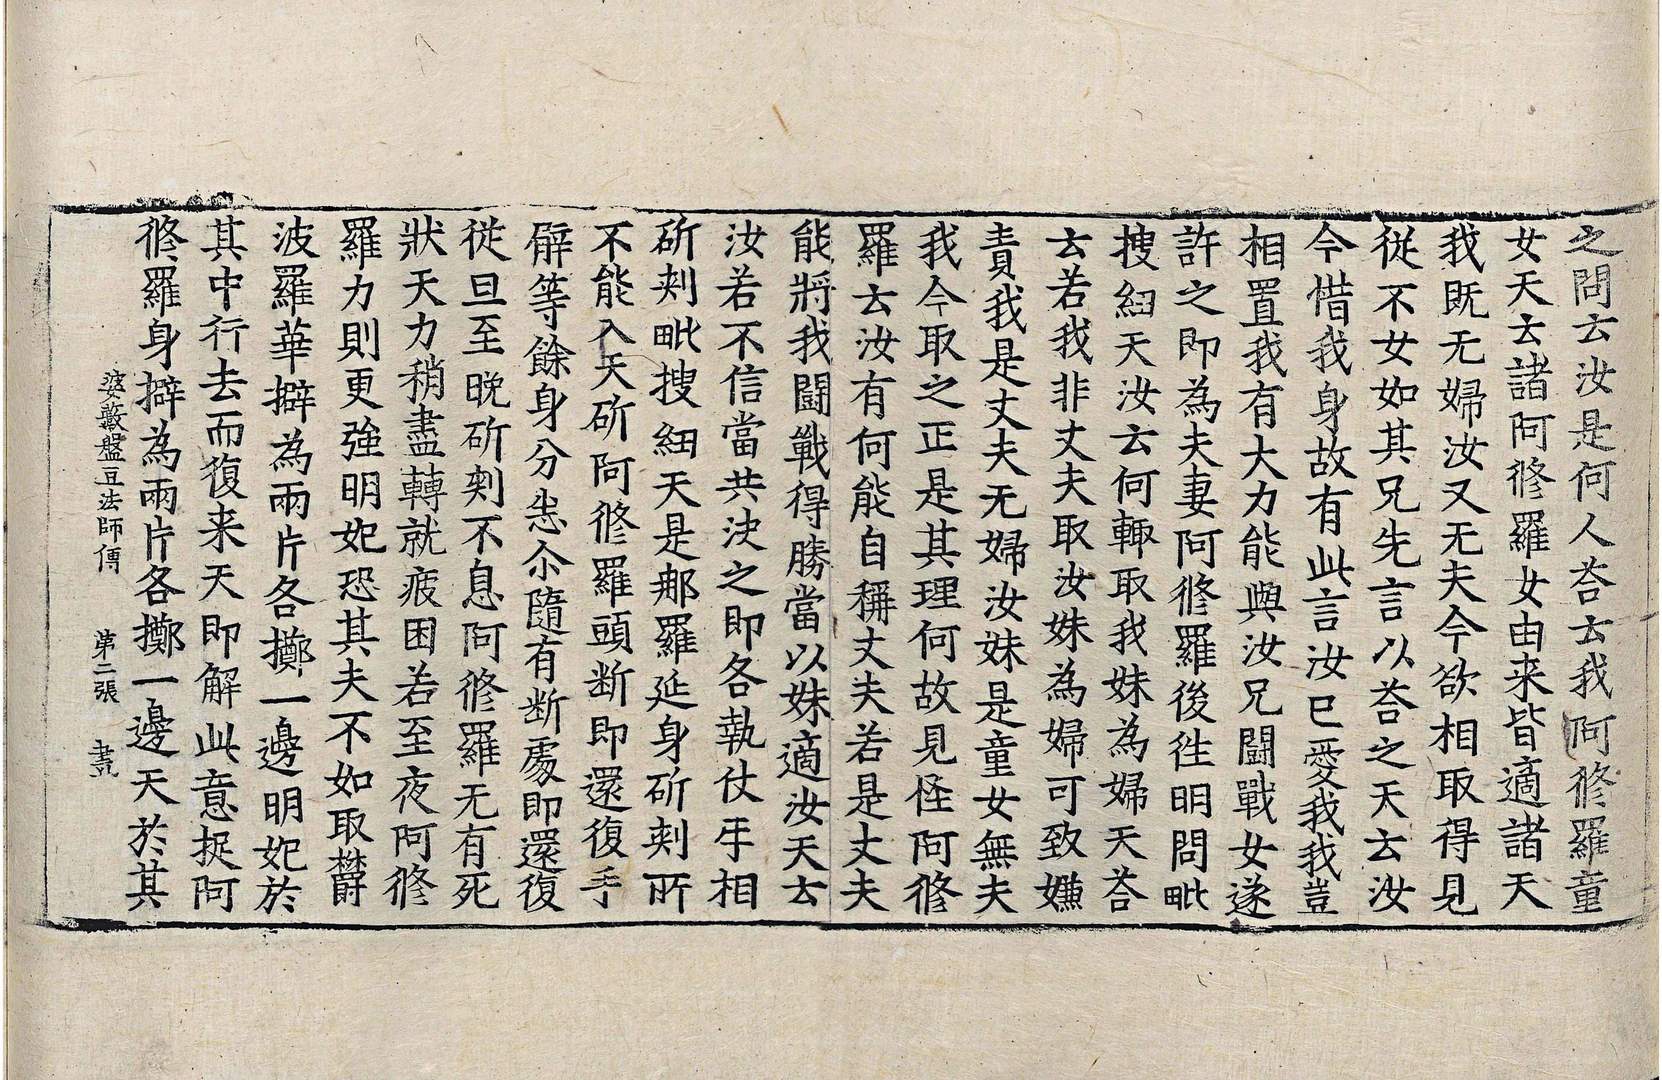 之問云汝是何人荅云我阿修羅童
女天云諸阿修羅女由来皆適諸天
我既无婦汝又无夫今欲相取得見
從不女如其兄先言以荅之天云汝
今惜我身故有此言汝已愛我我豈
相置我有大力能與汝兄鬪戰女遂
許之即為夫妻阿修羅後徃明問毗
搜紐天汝云何輙取我妹為婦天荅
云若我非丈夫取汝妹為婦可致嫌
責我是丈夫无婦汝妹是童女無夫
我今取之正是其理何故見怪阿修
羅云汝有何能自稱丈夫若是丈夫
能將我鬪戰得勝當以妹適汝天云
汝若不信當共決之即各執仗互相
斫刾毗搜紐天是那羅延身斫刾所
不能入天斫阿修羅頭断即還復手
臂等餘身分悉尒隨有断處即還復
從旦至晚斫刾不息阿修羅无有死
狀天力稍盡轉就疲困若至夜阿修
羅力則更強明妃恐其夫不如取欝
波羅華擗為兩片各擲一邊明妃於
其中行去而復来天即解此意捉阿
修羅身擗為兩片各擲一邊天於其
婆藪盤豆法師傳 第二張 畵